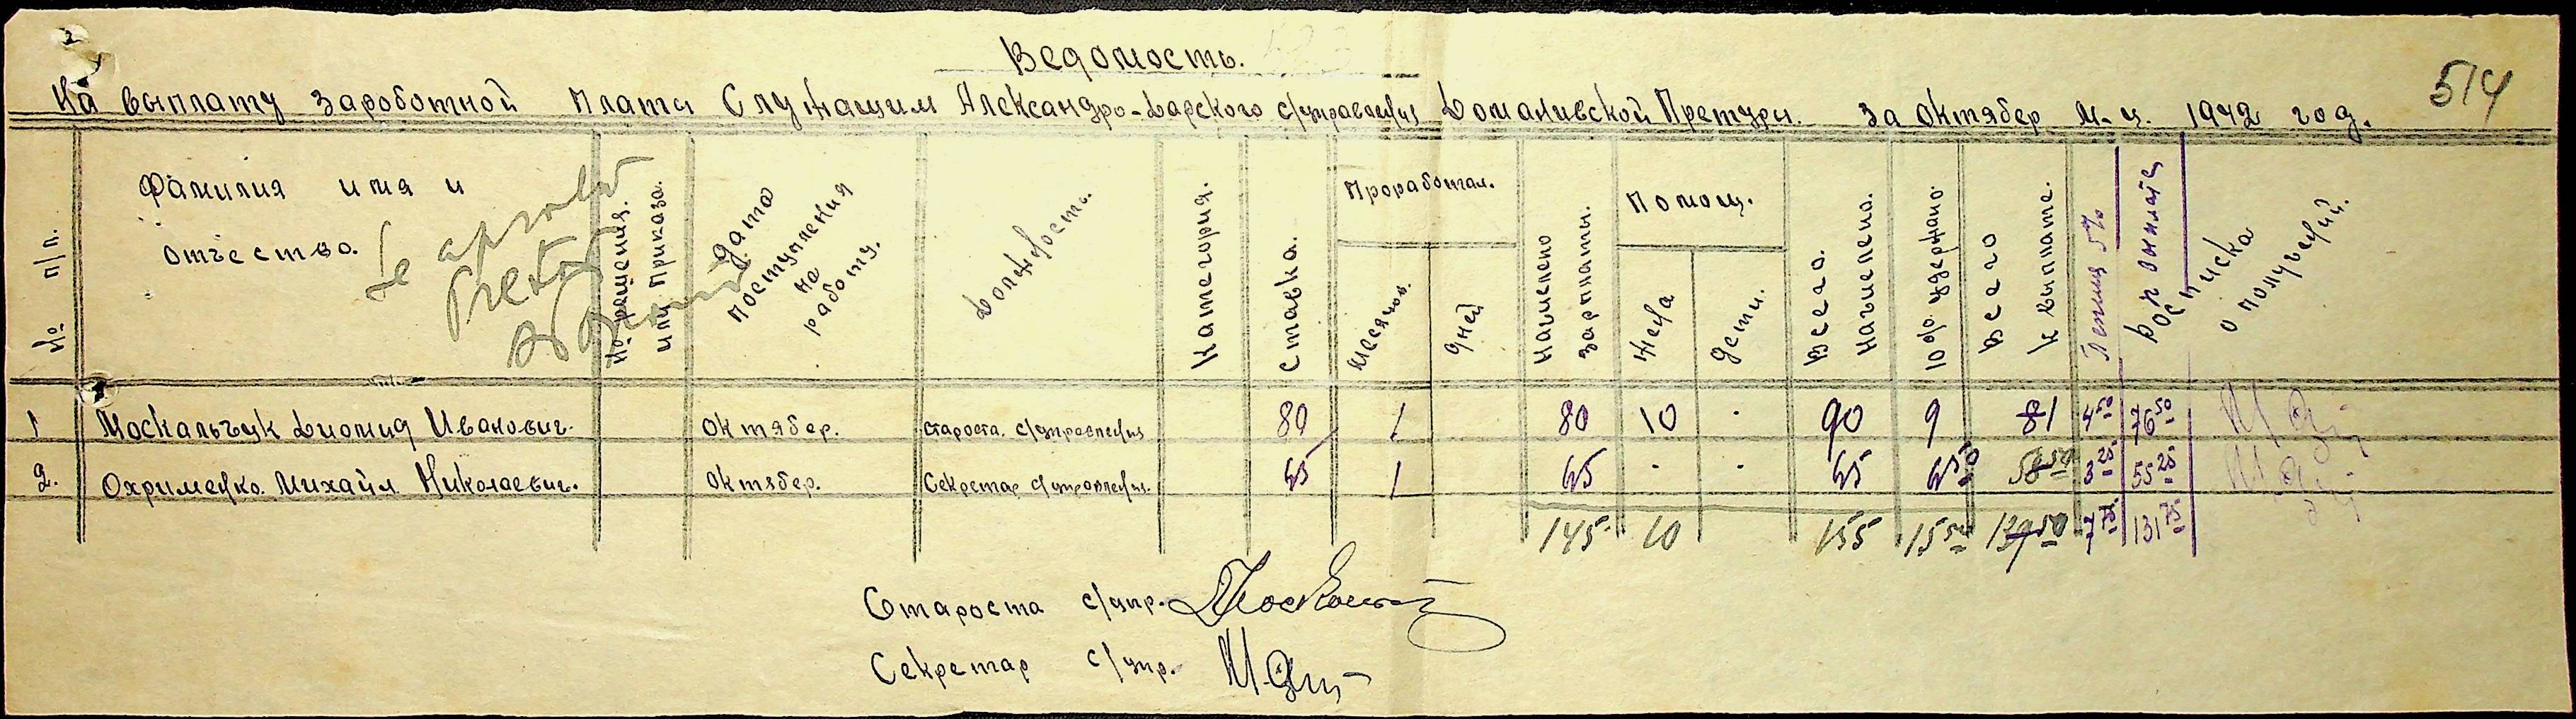 Ведомость.
514
На выплату Зароботной Платы Служащим Александро-Дарского с/управления Доманивской Претуры. за Октябер М-ц. 1942 год.
№ п/п.
Фамилия имя и
отчество.
Se aprobă
Pretor
№ решения.
или Приказа.
Дата
поступления
на
работу.
Должность.
Категория.
Ставка.
Проработал.
Месяцов.
Дней
Начислено
зарплаты.
Помощ.
Жена
Дети.
Всего.
Начислено.
10% удержано.
Всего
к выплате.
Пенсия 5%
К выплате
Росписка
о получении.
1 Москальчук Диомид Иванович. Октябер. Староста. с/управления 80 1 80 10 . 90 9 81 4 50 76 50
2. Охрименко. Михайл Николаевич. Октябер. Секретар с/управления. 65 1 65 . . 65 6 50 58 50 3 25 55 25
145 10 155 15 50 139 50 7 75 131 75
Староста с/упр.
Секретар с/упр.